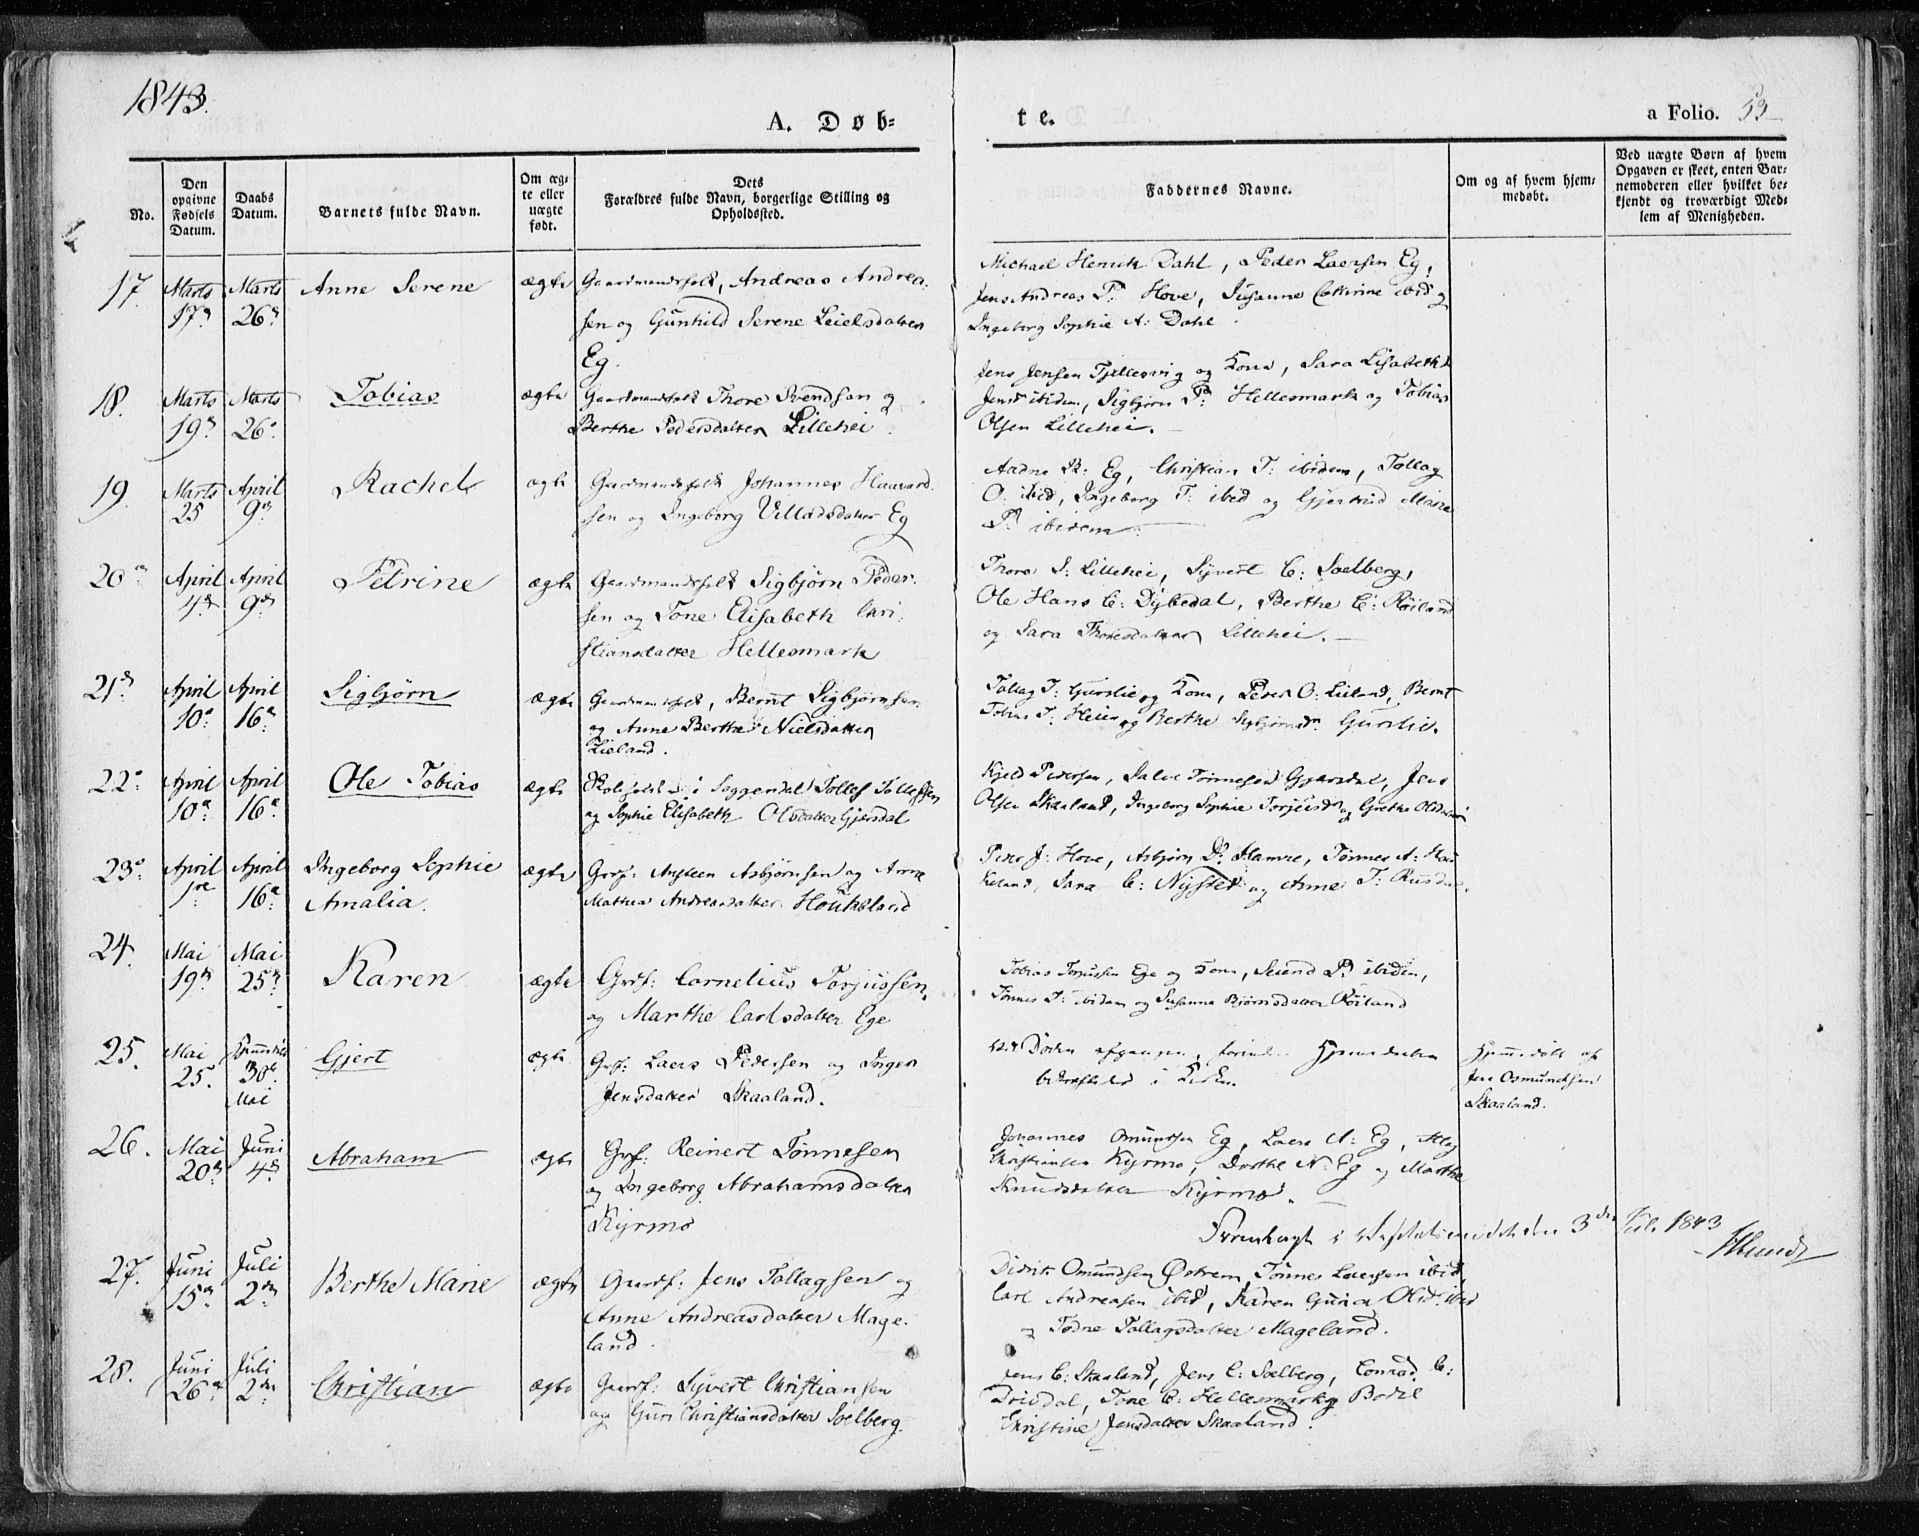 1843.
A. Døb-
te.
a Folio. 53
No.
Den opgivne Fødsels Datum.
Daabs Datum.
Barnets fulde Navn.
Om ægte eller uægte født.
Dets Forældres fulde Navn, borgerlige Stilling og Opholdssted.
Faddernes Navne.
Om og af hvem hjemmedøbt.
Ved uægte Børn af hvem Opgaven er skeet, enten Barnemoderen eller hvilket bekjendt og troværdigt Medlem af Menigheden.
17. Marts Marts Anne Serene ægte Gaardmandsfolk, Andreas Andrea-
17d 26d sen og Gunhild Serene Leielsdatter
Eg.
Michael Henrik Dahl, Peder Laersen Eg,
Jens Andreas P. Hove, Susanne Cathrine ibid og
Ingeborg Sophie A: Dahl.
18. Marts Marts Tobias ægte Gaardmandsfolk Thore Svendsen og
19d 26d Berthe Pedersdatter Lillehei.
Jens Jensen Tjellesvig og Kone, Sara Lisabeth
Jensd ibidem, Sigbjørn P: Hellesmark og Tobias
Olsen Lillehei.
19. Marts April Rachel ægte Gaardmandsfolk Johannes Haavard-
25 9d sen og Ingeborg Villadsdatter Eg
Aadne R: Eg, Christian T: ibidem, Tollag
O. ibid, Ingeborg T: ibid og Gjertrud Marie
P. ibidem
20 April April Petrine ægte Gaardmandsfolk Sigbjørn Peder-
4d 9d sen og Tone Elisabeth Chri-
stiansdatter Hellesmark
Thore S: Lillehei, Syvert C: Soelberg,
Ole Hans C: Dybedal, Berthe C: Røiland
og Sara Thoresdatter Lillehei.
21 April April Sigbjørn ægte Gaardmandsfolk, Bernt Sigbjørnsen
10 16 og Anne Berthe Nielsdatter
Lieland.
Tollag T: Gurslie og Kone, Peder O: Lieland, Bernt
Tobias T: Heien og Berthe Sigbjørnsd Gurslie.
22 April April Ole Tobias ægte i Soggendal Tollef Tollefsen
10 16 og Sophie Elisabeth Olsdatter Gjersdal
Kjeld Pedersen, Salve Tønnesen Gjersdal, Jens
Olsen Skaaland, Ingeborg Sophie Torjeisd og Grethe Olsdatter
23 April April Ingeborg Sophie ægte Grdf: Aysteen Asbjørnsen og Anne
1re 16 Amalia. Mathea Andreasdatter Houkeland
Peder J: Hove, Asbjørn D: Hamre, Tønnes A: Hou-
keland, Sara C: Nysted og Anne T: Rusdal.
24. Mai Mai Karen ægte Grdf: Cornelius Torjussen
19d 25d og Marthe Carlsdatter Ege
Tobias Torjussen Ege og Kone, Seiend P. ibidem,
Tønnes T: ibidem og Susanne Bjørnsdatter Røiland
25. Mai 30 Gjert ægte Grf: Laers Pedersen og Inger
25. Mai Jensdatter Skaaland.
Ved Døden afgangen, forinden Hjemmedaaben
bekræftedes i Kirken.
Hjemmedøbt af
Jens Osmundsen
Skaaland.
26. Mai Juni Abraham ægte Grf: Reinert Tønnesen
20d 4d og Ingeborg Abrahamsdatter
Kyrmo
Johannes Omundsen Eg, Laers N: Eg,
Christiansen Kyrmo, Dorthe N: Eg og Marthe
Knudsdatter Kyrmo.
3die Juli 1843
27. Juni Juli Berthe Marie ægte Gaardf: Jens Tollagsen og
15d 2den Anne Andreasdatter Mage-
land.
Didrik Omundsen Østrem, Tønnes Laersen ibid,
Carl Andreasen ibid, Karen Guria Olsd: ibid
og Todne Tollagsdatter Mageland.
28. Juni Juli Christian ægte Gaardf: Syvert Christiansen
26d 2den og Guri Christiansdatter Soelberg.
Jens C: Skaaland, Jens C: Soelberg, Conrad C:
Drisdal, Tone C: Hellesmark og Bodil
Christine Jensdatter Skaaland.